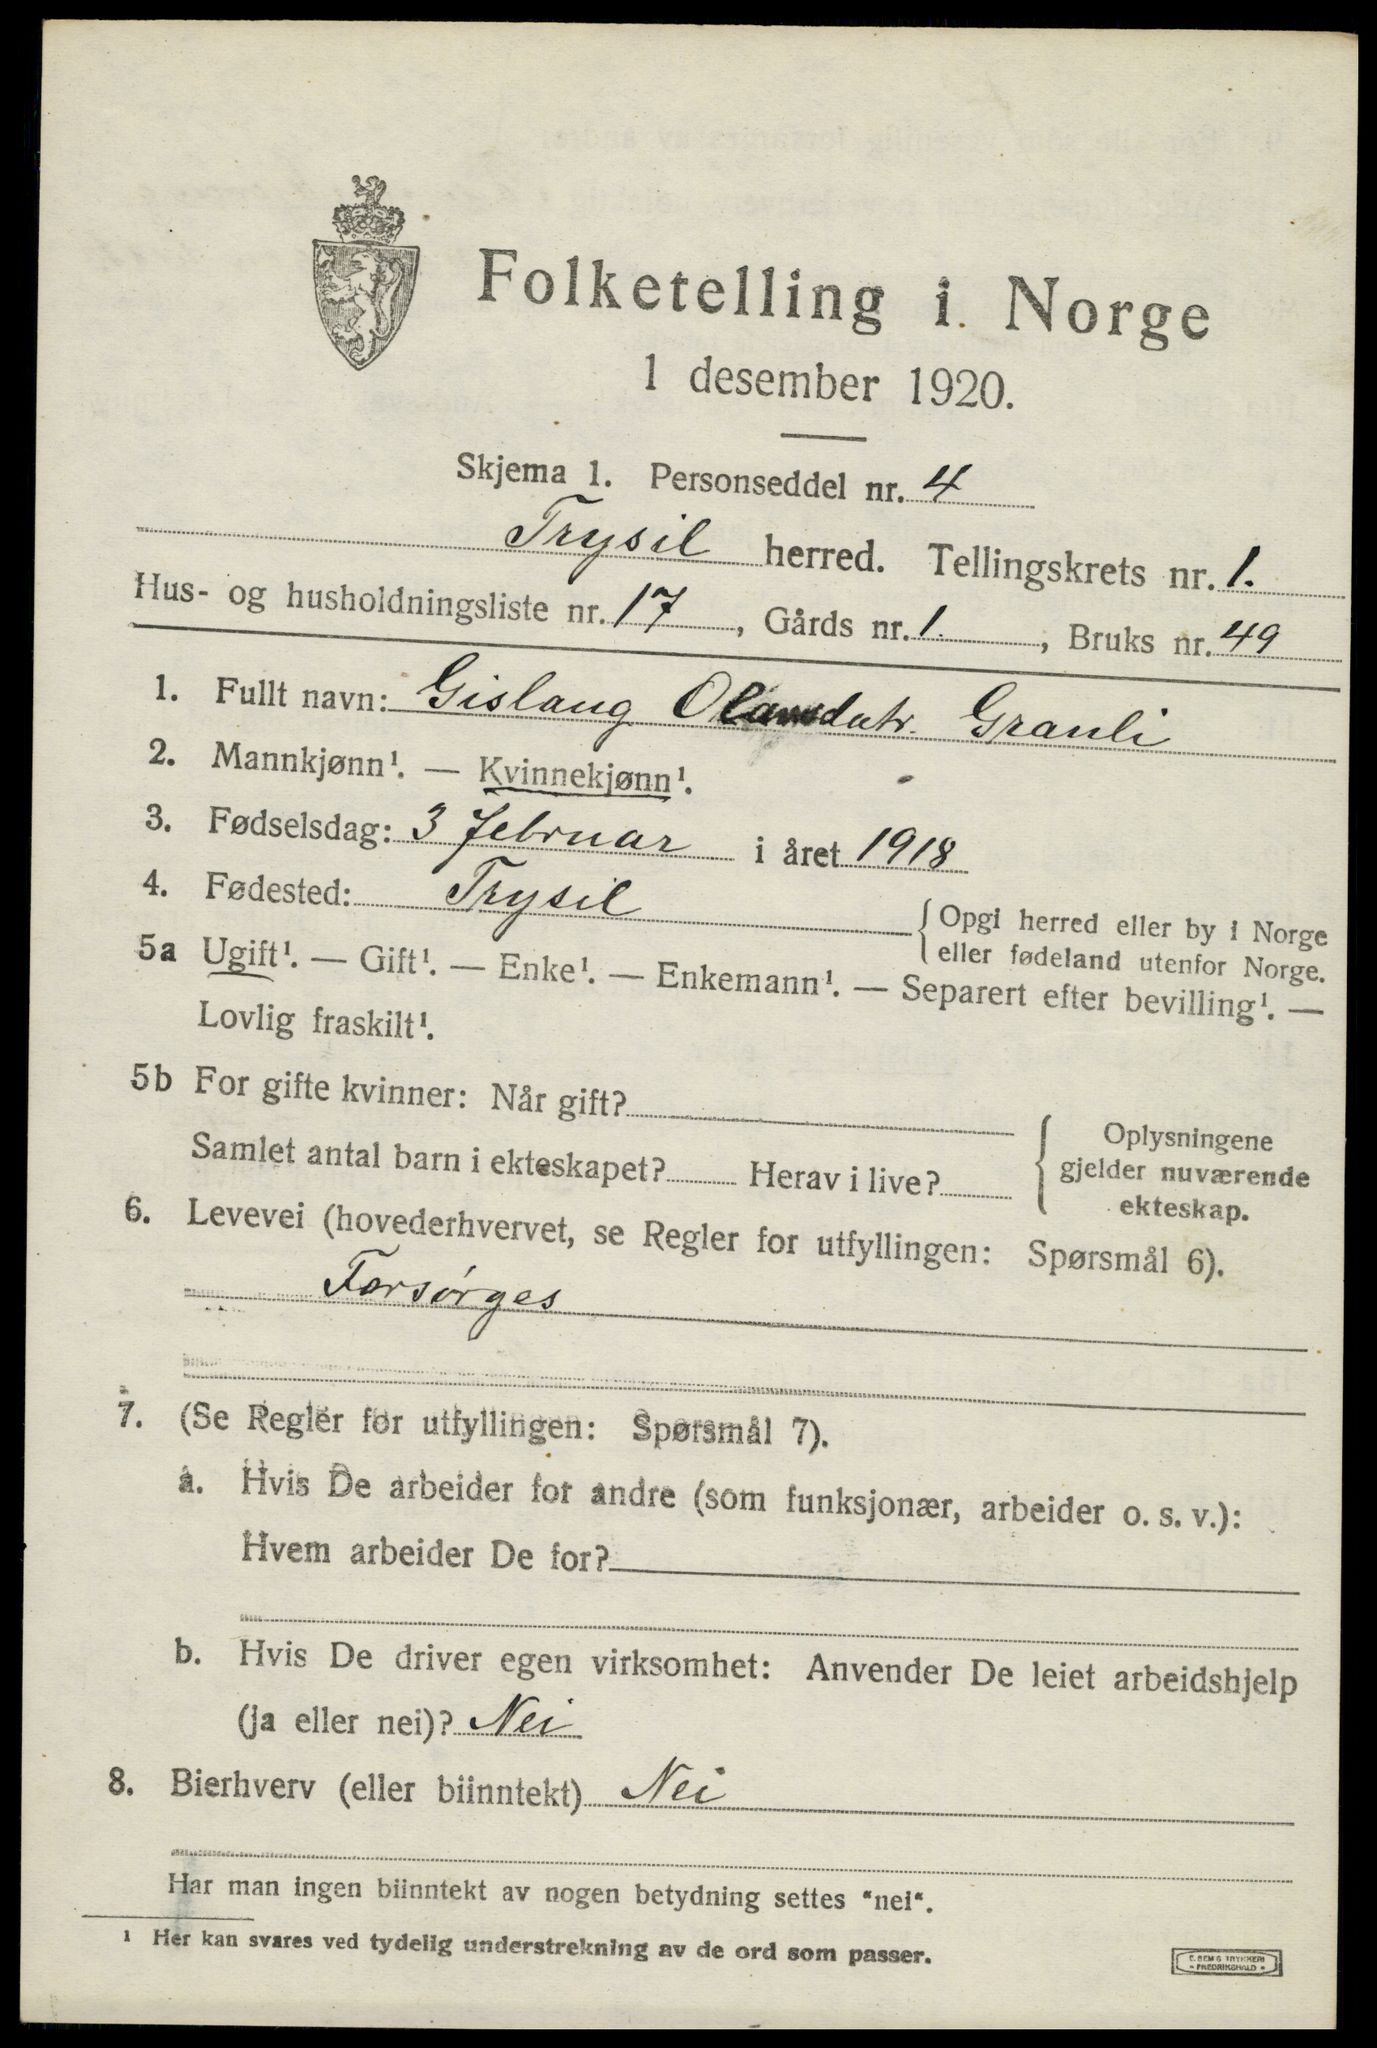 Folketelling i Norge
1 desember 1920.
Skjema 1. Personseddel nr. 4
Trysil herred. Tellingskrets nr. 1.
Hus- og husholdningsliste nr. 17, Gårds nr. 1., Bruks nr. 49
1. Fullt navn: Gislaug Olamsdatr. Granli
2. Mannkjønn¹. — Kvinnekjønn¹.
3. Fødselsdag: 3 februar i året 1918
4. Fødested: Trysil
{ Opgi herred eller by i Norge
eller fødeland utenfor Norge.
5a Ugift¹. — Gift¹. — Enke¹. — Enkemann¹. — Separert efter bevilling¹. —
Lovlig fraskilt¹.
5b For gifte kvinner: Når gift?
Samlet antal barn i ekteskapet? Herav i live?
{ Oplysningene
gjelder nuværende
ekteskap.
6. Levevei (hovederhvervet, se Regler for utfyllingen: Spørsmål 6).
Forsørges
7. (Se Regler for utfyllingen: Spørsmål 7).
a. Hvis De arbeider for andre (som funksjonær, arbeider o. s. v.):
Hvem arbeider De for?
b. Hvis De driver egen virksomhet: Anvender De leiet arbeidshjelp
(ja eller nei)? Nei
8. Bierhverv (eller biinntekt) Nei
Har man ingen biinntekt av nogen betydning settes "nei".
¹ Her kan svares ved tydelig understrekning av de ord som passer.
TRYKKERI
FREDRIKSHALD